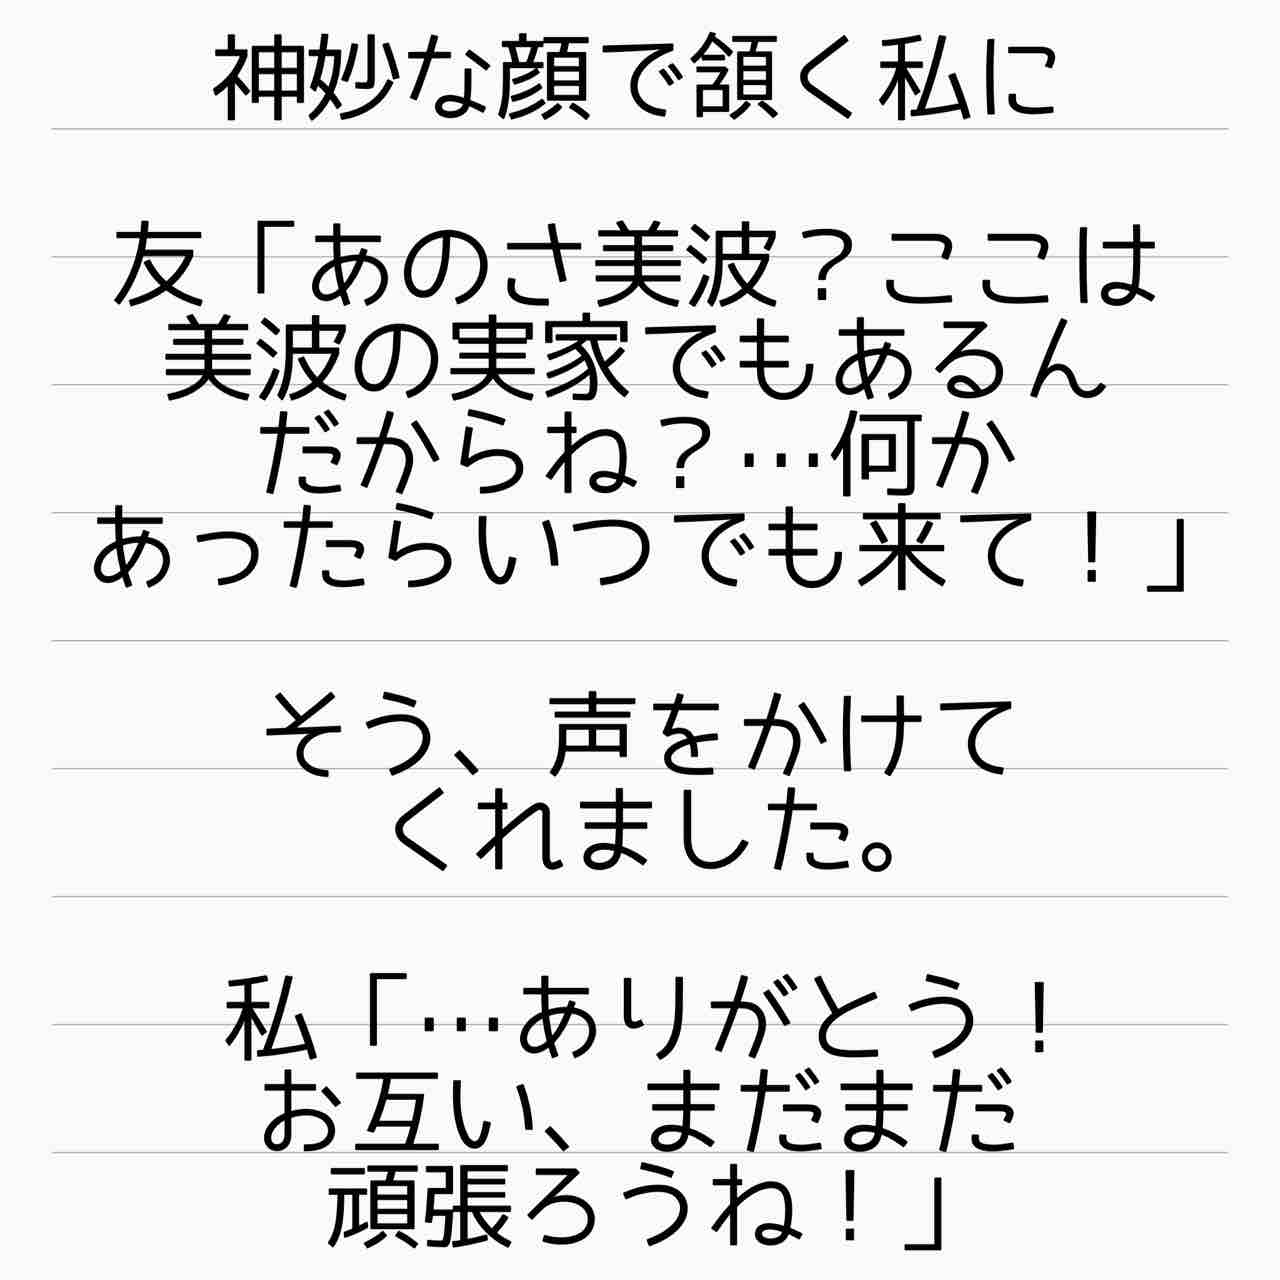 神妙な顔で頷く私に
友「あのさ美波？ここは
美波の実家でもあるん
だからね？…何か
あったらいつでも来て！」
そう、声をかけて
くれました。
私「…ありがとう！
お互い、まだまだ
頑張ろうね！」